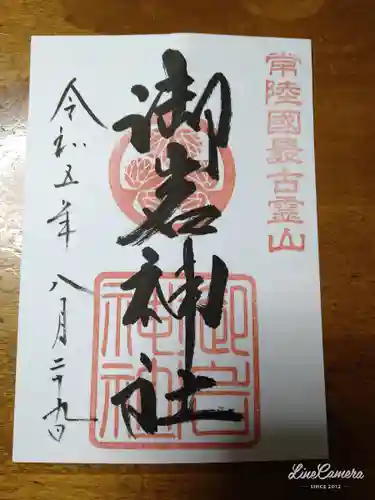 常陸國最古霊山
御岩神社
御岩神社
令和五年 八月二十九日
LineCamera
SINCE 2012